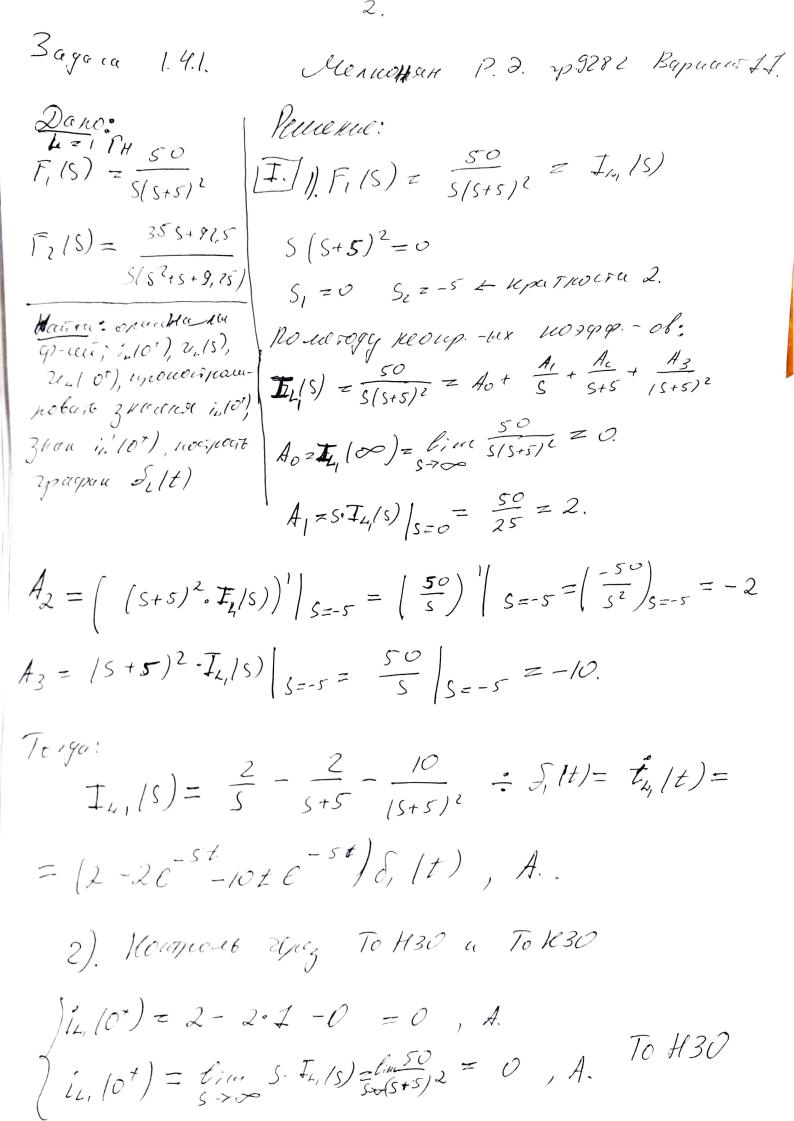 2.
Задача 1.4.1. Мелконян Р. Э. гр9282 Вариант 11.
Дано:
L = 1 Гн
F₁(s) = 50 / s(s+5)²
F₂(s) = 35s+92,5 / s(s²+s+9,25)
Найти: оригиналы
ф-ций; iʟ(0⁺), uʟ(s),
uʟ(0⁺),
значения iʟ(0⁺),
знак iʟ'(0⁺), построить
графики fʟ(t)
Решение:
I. 1). F₁(s) = 50 / s(s+5)² = I_L₁(s)
s(s+5)² = 0
s₁ = 0 s₂ = -5 ← кратности 2.
По методу неопр-ых коэфф.-ов:
I_L₁(s) = 50 / s(s+5)² = A₀ + A₁/s + A₂/s+5 + A₃/(s+5)²
A₀ = I_L₁(∞) = lim s→∞ 50 / s(s+5)² = 0.
A₁ = s·I_L₁(s) |s=0 = 50/25 = 2.
A₂ = ((s+5)²·I_L₁(s))' |s=-5 = (50/s)' |s=-5 = (-50/s²)s=-5 = -2
A₃ = (s+5)²·I_L₁(s) |s=-5 = 50/s |s=-5 = -10.
Тогда:
I_L₁(s) = 2/s - 2/s+5 - 10/(s+5)² ÷ f₁(t) = i_L₁(t) =
= (2 - 2e^-5t - 10t e^-5t) δ₁(t), А.
2). Контроль через ТоНЗО и ТоКЗО
i_L₁(0⁺) = 2 - 2·1 - 0 = 0, А.
i_L₁(0⁺) = lim s→∞ s·I_L₁(s) = lim s→∞ 50/(s+5)² = 0, А. ТоНЗО